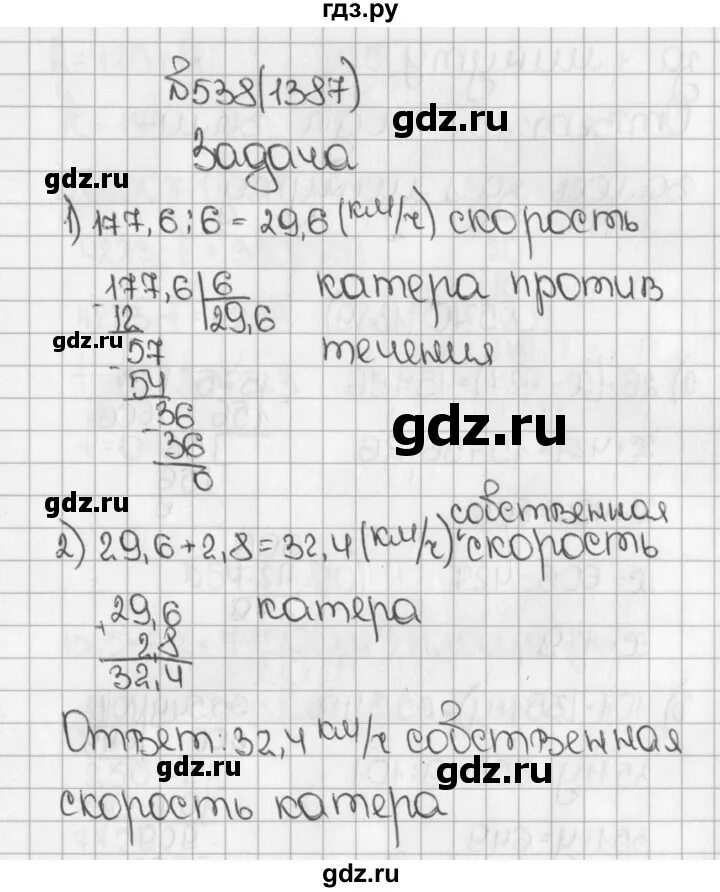 гдз.ру
№538(1387)
gdz.ru
Задача
gdz.ru
1) 177,6:6 = 29,6 (км/ч) скорость
177,6 6 катера против
- 12 29,6
gdz.ru
57 течения
- 54
36
- 36
gdz.ru
0
gdz.ru
собственная
2) 29,6+2,8=32,4(км/ч) скорость
29,6 катера
+ 2,8
32,4
Ответ: 32,4 км/ч собственная
gdz.ru
gdz.ru
скорость катера
gdz.ru